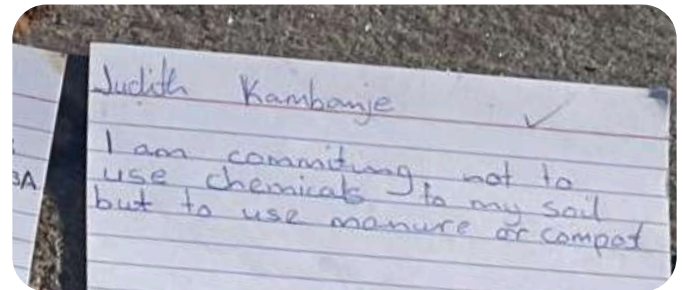 Judith Kambanje ✓
I am commiting not to
use chemicals to my soil
but to use manure or compost
BA